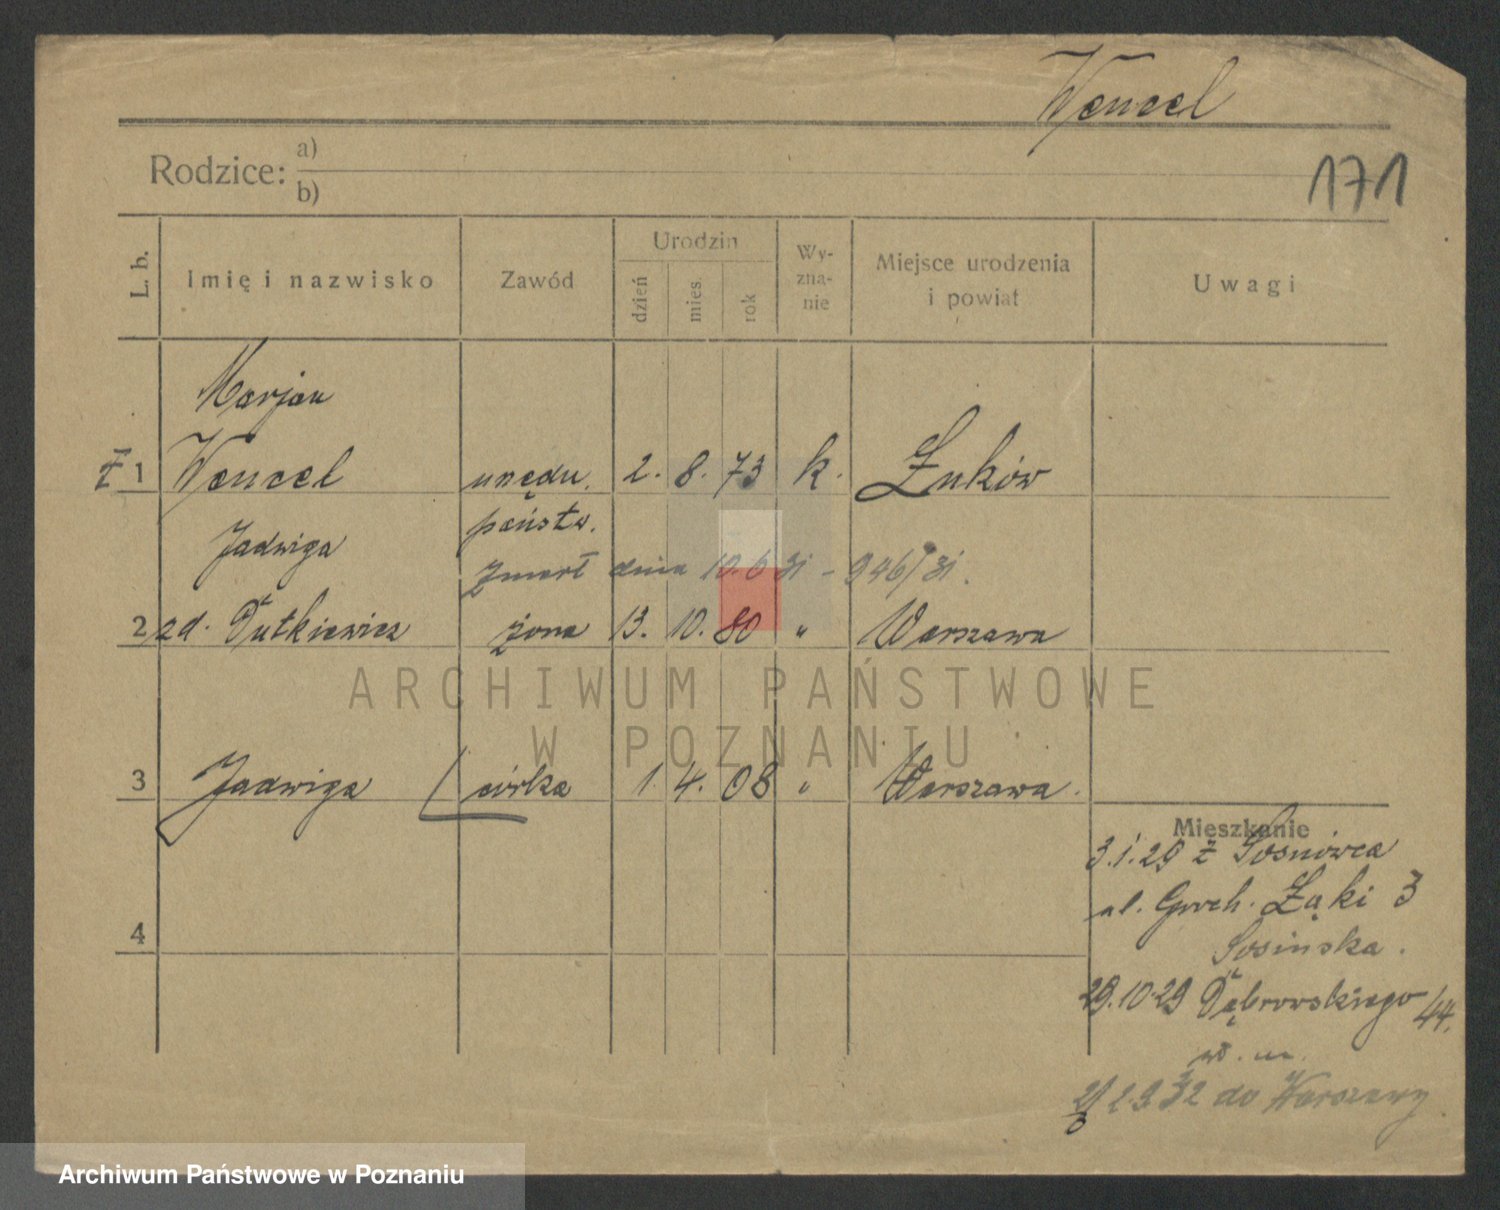 Wencel
171
Rodzice: a)
b)
L. b. Imię i nazwisko Zawód Urodzin dzień mies. rok Wy-zna-nie Miejsce urodzenia i powiat Uwagi
Marjan
1 Wencel urzędn. 2. 8. 73 k. Żuków
państw.
Jadwiga
zmarł dnia 10.6 31 - 946/31.
2 zd. Dutkiewicz żona 13. 10. 80 " Warszawa
3 Jadwiga córka 1. 4. 08 " Warszawa.
Mieszkanie
3.1.29 z Sosnowca
ul. Groch. Łąki 3
Sosinska.
4
29.10.29 Dąbrowskiego 44.
wł. m.
2 9 32 do Warszawy
ARCHIWUM PAŃSTWOWE
W POZNANIU
Archiwum Państwowe w Poznaniu